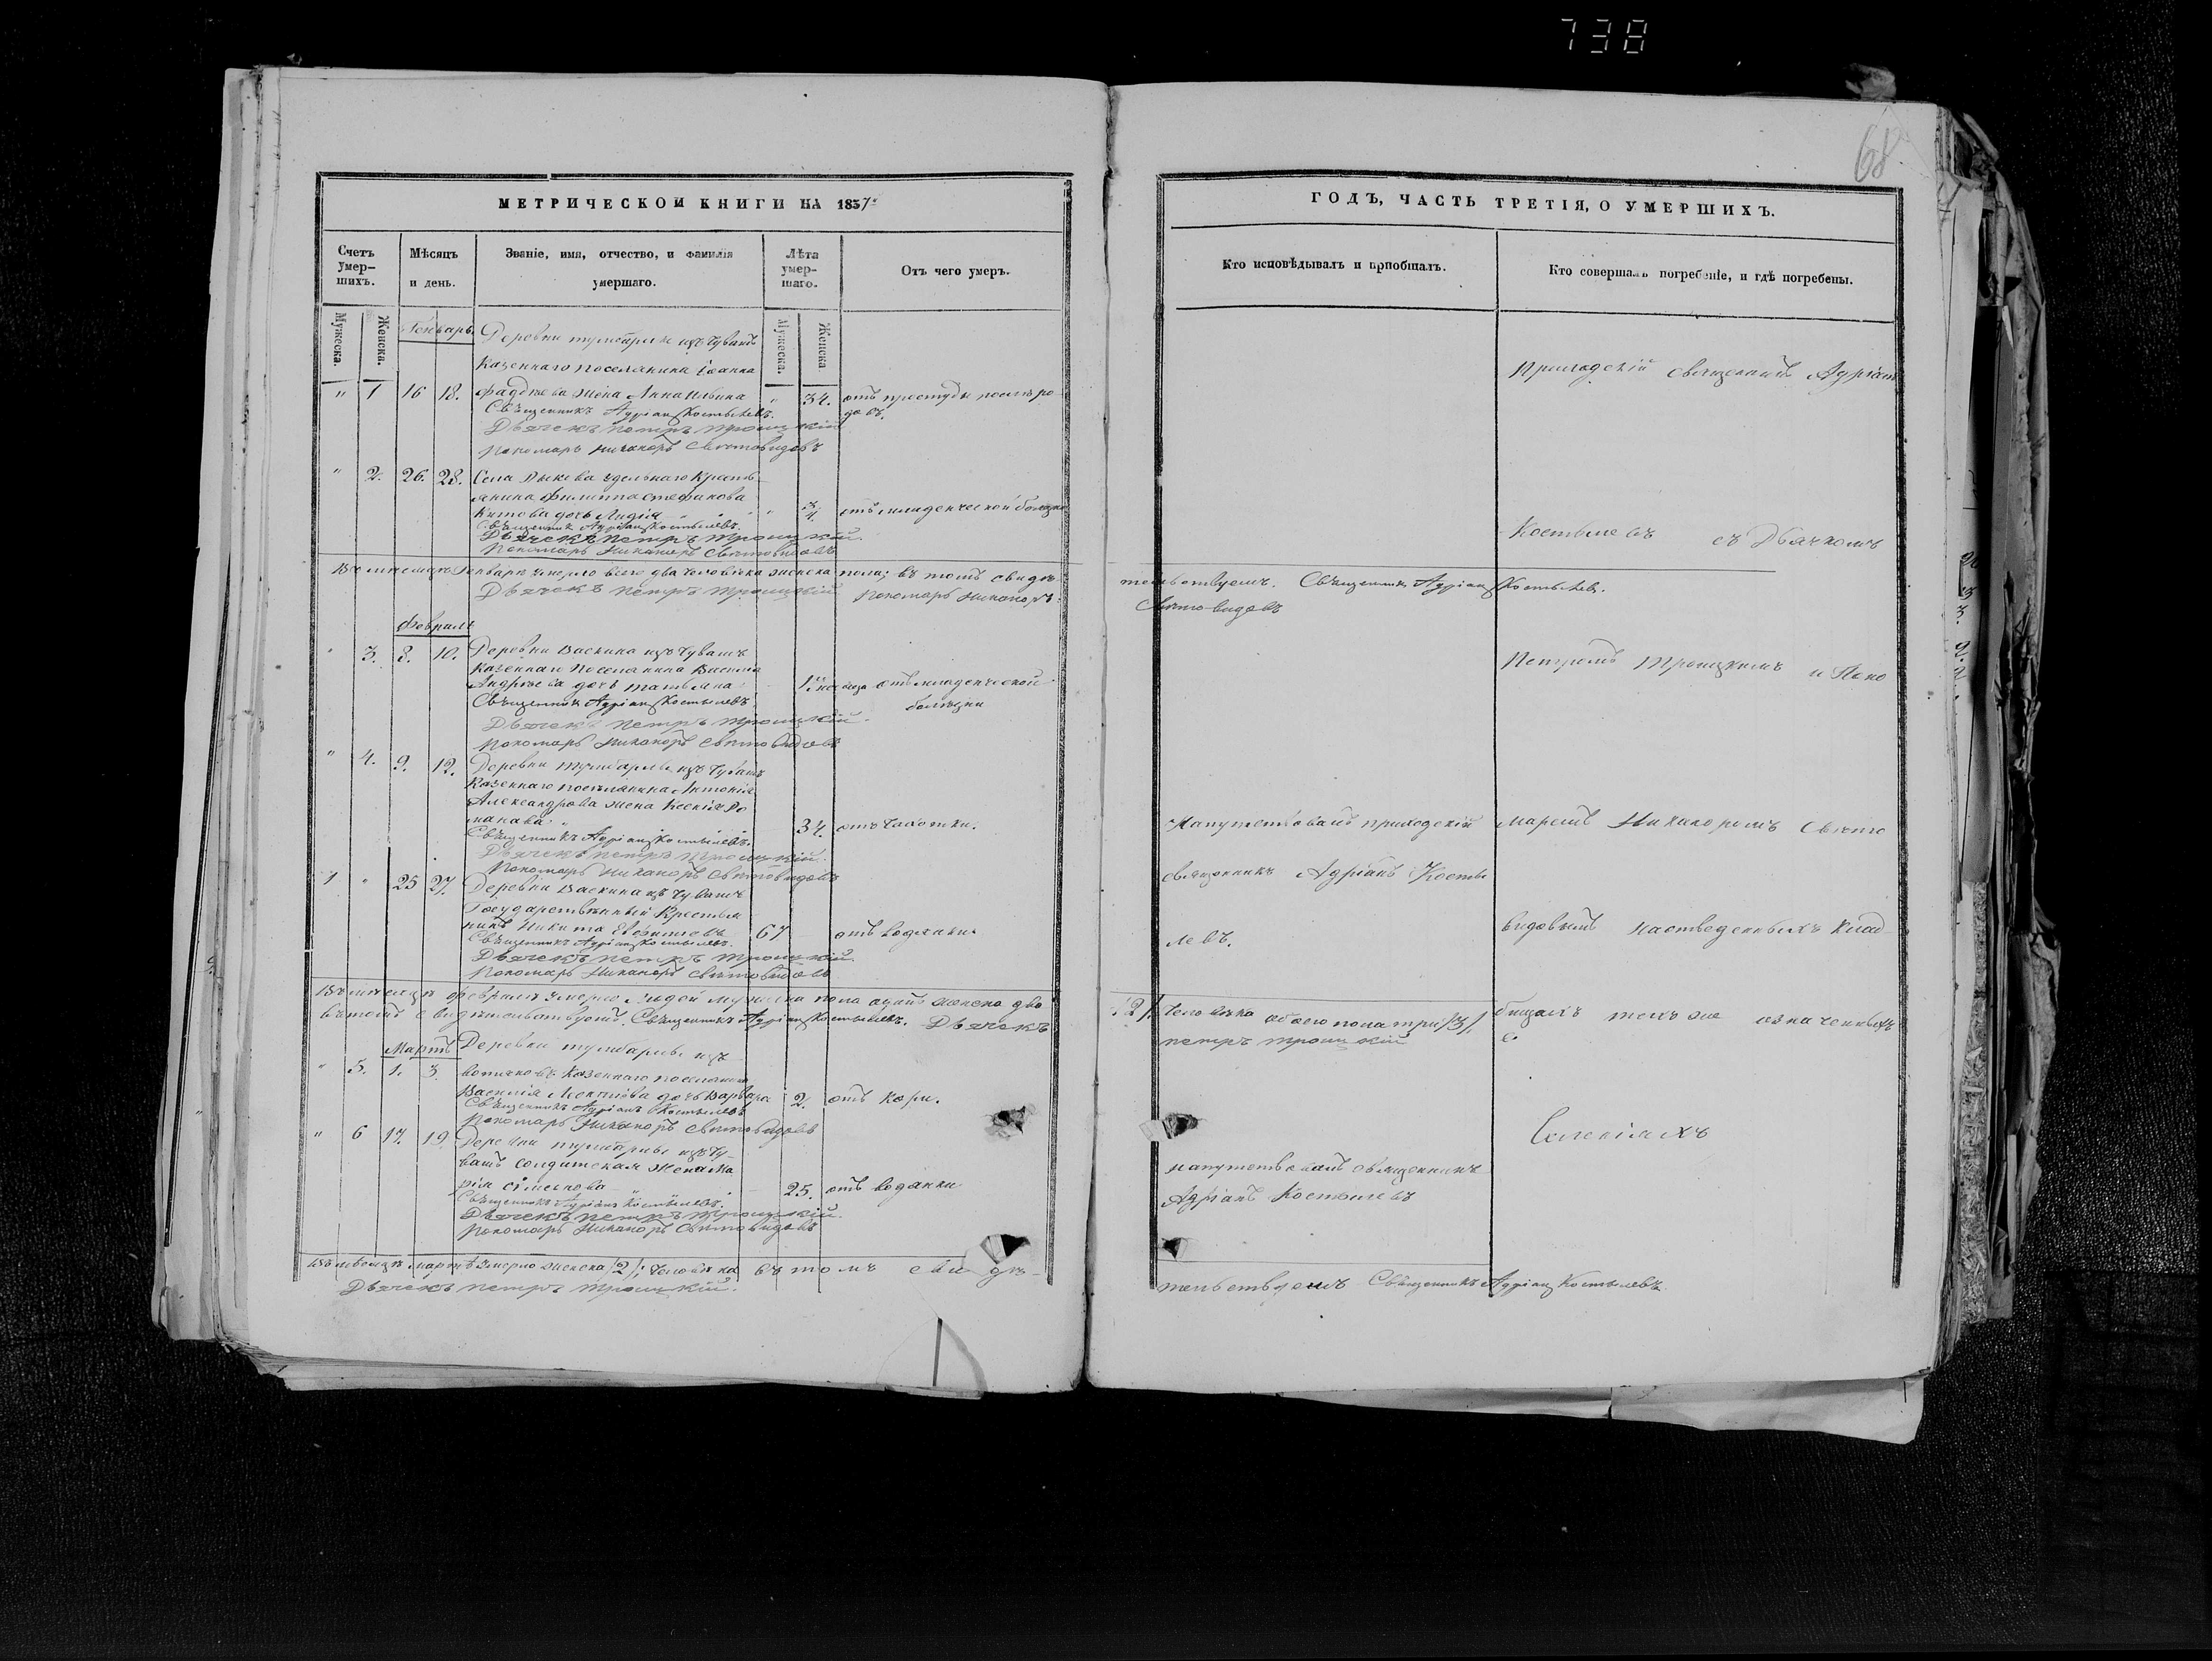 738
68
МЕТРИЧЕСКОЙ КНИГИ НА 1837
Счетъ умер-шихъ.
Мѣсяцъ и день.
Званіе, имя, отчество, и фамилія умершаго.
Лѣта умер-шаго.
Отъ чего умеръ.
Мужеска.
Женска.
Мужеска.
Женска.
Генварь
Деревни из чувашъ
казеннаго поселянина Іоанна
" 1 16 18. Фадѣева жена Анна Ильина " 34. отъ простуды послѣ ро
довъ.
Священникъ Адріанъ Костылевъ.
Дьячекъ Петръ Троицкій
Пономарь Никаноръ Святовидовъ
" 2. 26. 28. Села удѣльнаго кресть
янина Филиппа Стефанова
дочь Лидія " отъ младенческой болѣзни
Священникъ Адріанъ Костылевъ.
Дьячекъ Петръ Троицкій.
Пономарь Никаноръ Святовидовъ
Въ мѣсяцѣ Генварѣ умерло всего два человѣка женска пола; въ томъ свидѣ-
Дьячекъ Петръ Троицкій Пономарь Никаноръ
Февраль
" 3. 8. 10. Деревни Васкина изъ чувашъ
казеннаго поселянина Василья
Андрѣева дочь Татьяна отъ младенческой
болѣзни
Священникъ Адріанъ Костылевъ.
Дьячекъ Петръ Троицкій.
Пономарь Никаноръ Святовидовъ
" 4. 9. 12. Деревни изъ чувашъ
казеннаго поселянина Антонія
Александрова жена Ксенія Ро
манова 34. отъ чахотки.
Священникъ Адріанъ Костылевъ.
Дьячекъ Петръ Троицкій.
Пономарь Никаноръ Святовидовъ
1 " 25 27. Деревни Васкина изъ чувашъ
Государственный крестья
нинъ Никита 67 отъ водянки
Священникъ Адріанъ Костылевъ.
Дьячекъ Петръ Троицкій.
Пономарь Никаноръ Святовидовъ
Въ мѣсяцѣ Февралѣ умерло людей мужеска пола одинъ женска два
въ томъ свидѣтельствуютъ. Священникъ Адріанъ Костылевъ. Дьячекъ
Мартъ
Деревни изъ
" 5. 1. 3. казеннаго поселянина
Василія дочь Варвара 2. отъ кори.
Священникъ Адріанъ Костылевъ
Пономарь Никаноръ Святовидовъ
" 6 17. 19 Деревни изъ чу-
вашъ солдатская жена Ма
рія Сѣмѣнова 25. отъ водянки
Священникъ Адріанъ Костылевъ.
Дьячекъ Петръ Троицкій.
Пономарь Никаноръ Святовидовъ
Въ мѣсяцѣ Мартѣ умерло женска /2/ человѣка въ томъ свидѣ-
Дьячекъ Петръ Троицкій.
ГОДЪ, ЧАСТЬ ТРЕТІЯ, О УМЕРШИХЪ.
Кто исповѣдывалъ и пріобщалъ.
Кто совершалъ погребеніе, и гдѣ погребены.
Приходскій священникъ Адріанъ
Костылевъ съ Дьячкомъ
тельствуемъ. Священникъ Адріанъ Костылевъ.
Святовидовъ
Петромъ Троицкимъ и Поно
Напутствовалъ приходскій
маремъ Никаноромъ Свято
священникъ Адріанъ Косты
левъ.
видовымъ на отведенныхъ клад
/2/. человѣка обоего пола три /3/.
бищахъ тѣхъ же означенныхъ
Петръ Троицкій
Селеніяхъ
напутствовалъ священникъ
Адріанъ Костылевъ
тельствуемъ Священникъ Адріанъ Костылевъ